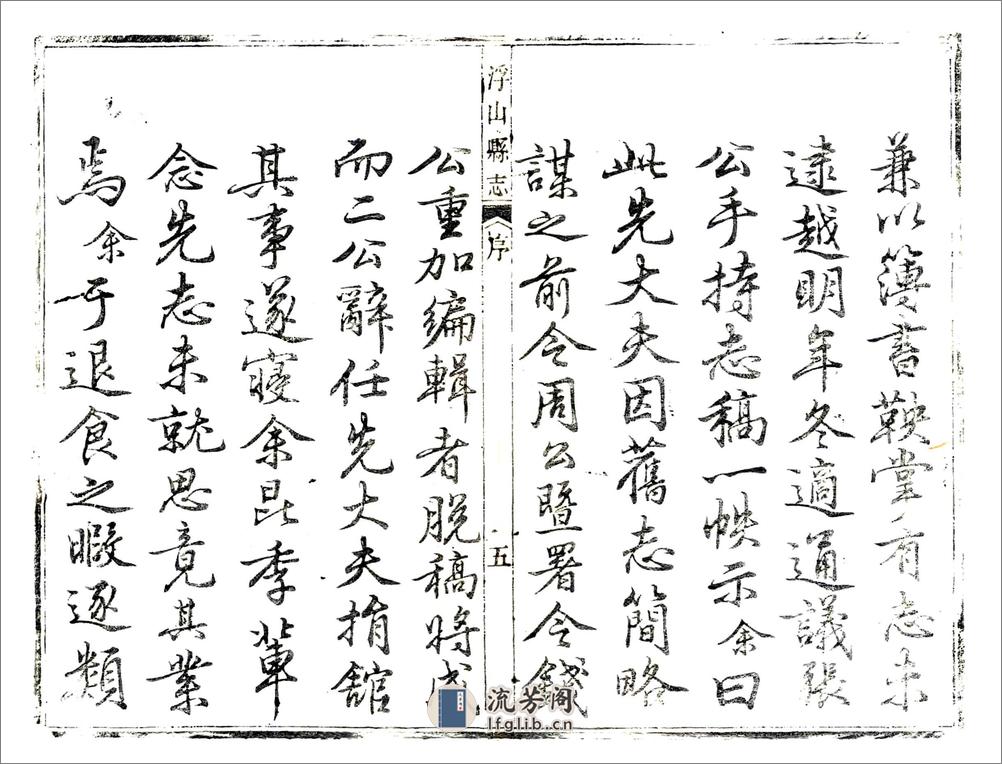 兼以簿書鞅掌有志未
逮越明年冬適通議張
公手持志稿一帙示余曰
此先大夫因舊志簡略
謀之前令周公暨署令錢
浮山縣志
序
五
公重加編輯者脫稿將成
而二公辭任先大夫捐舘
其事遂寢余昆季輩
念先志未就思竟其業
焉余于退食之暇逐類
流芳阁
lfglib.cn